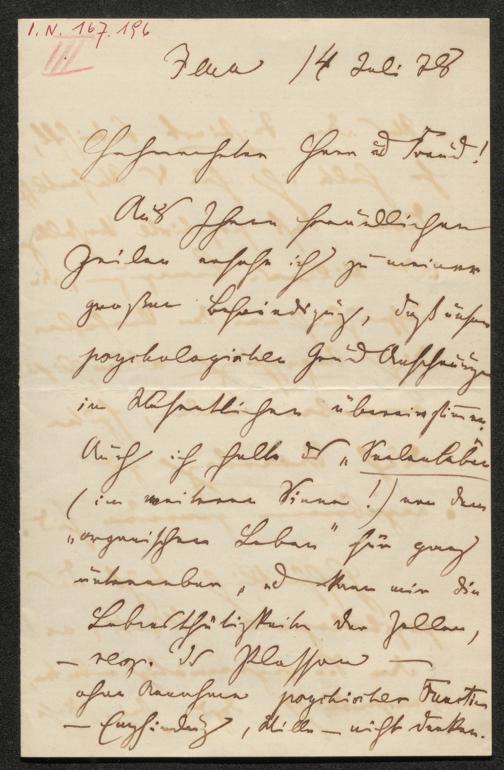 I.N. 167.196
III
Jena 14 Juli 78
Hochverehrter Herr ud Freund!
Aus Ihren freundlichen
Zeilen ersehe ich zu meiner
großen Befriedigung, daß unsere
psychologischen Grund Anschauungen
im Wesentlichen übereinstimmen.
Auch ich halte das „Seelenleben
(im weiteren Sinne!) von dem
„organischen Leben" für ganz
untrennbar, ud kann mir die
Lebensthätigkeiten der Zellen,
— resp. des Plasson —
ohne Annahme psychischer Function
— Empfindung, Wille — nicht denken.